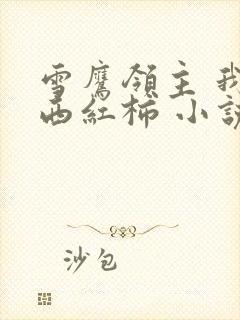 雪鷹領主 我
西紅柿 小説
沙包